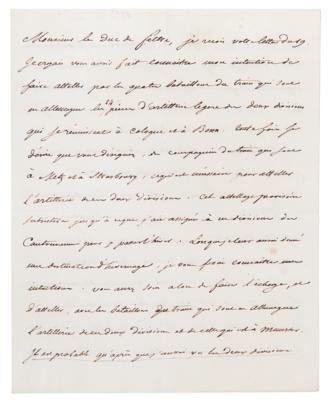 Monsieur le duc de feltre, je reçois votre lettre du 19
Je croyais vous avoir fait connaitre mon intention de
faire atteler par les quatre bataillons du train qui sont
en allemagne les pieces d'artillerie legere des deux divisions
qui se réunissent à Cologne et à Bonn. toute fois je
désire que vous dirigiez, des compagnies du train qui sont
à Metz et à Strasbourg, ce qui est nécessaire pour atteler
l'artillerie de ces deux divisions. cet attelage provisoire
subsistera jusqu'à ce que j'aie assigné à ces divisions des
Cantonnemens pour y passer l'hiver. Lorsque je leur aurai donné
une destination d'hivernage, je vous ferai connaitre mes
intentions. vous aurez soin alors de faire l'échange, et
d'atteler, avec les bataillons du train qui sont en allemagne
l'artillerie de ces deux divisions et de celle qui est à Munster.
Il est probable qu'après que j'aurai vu les deux divisions